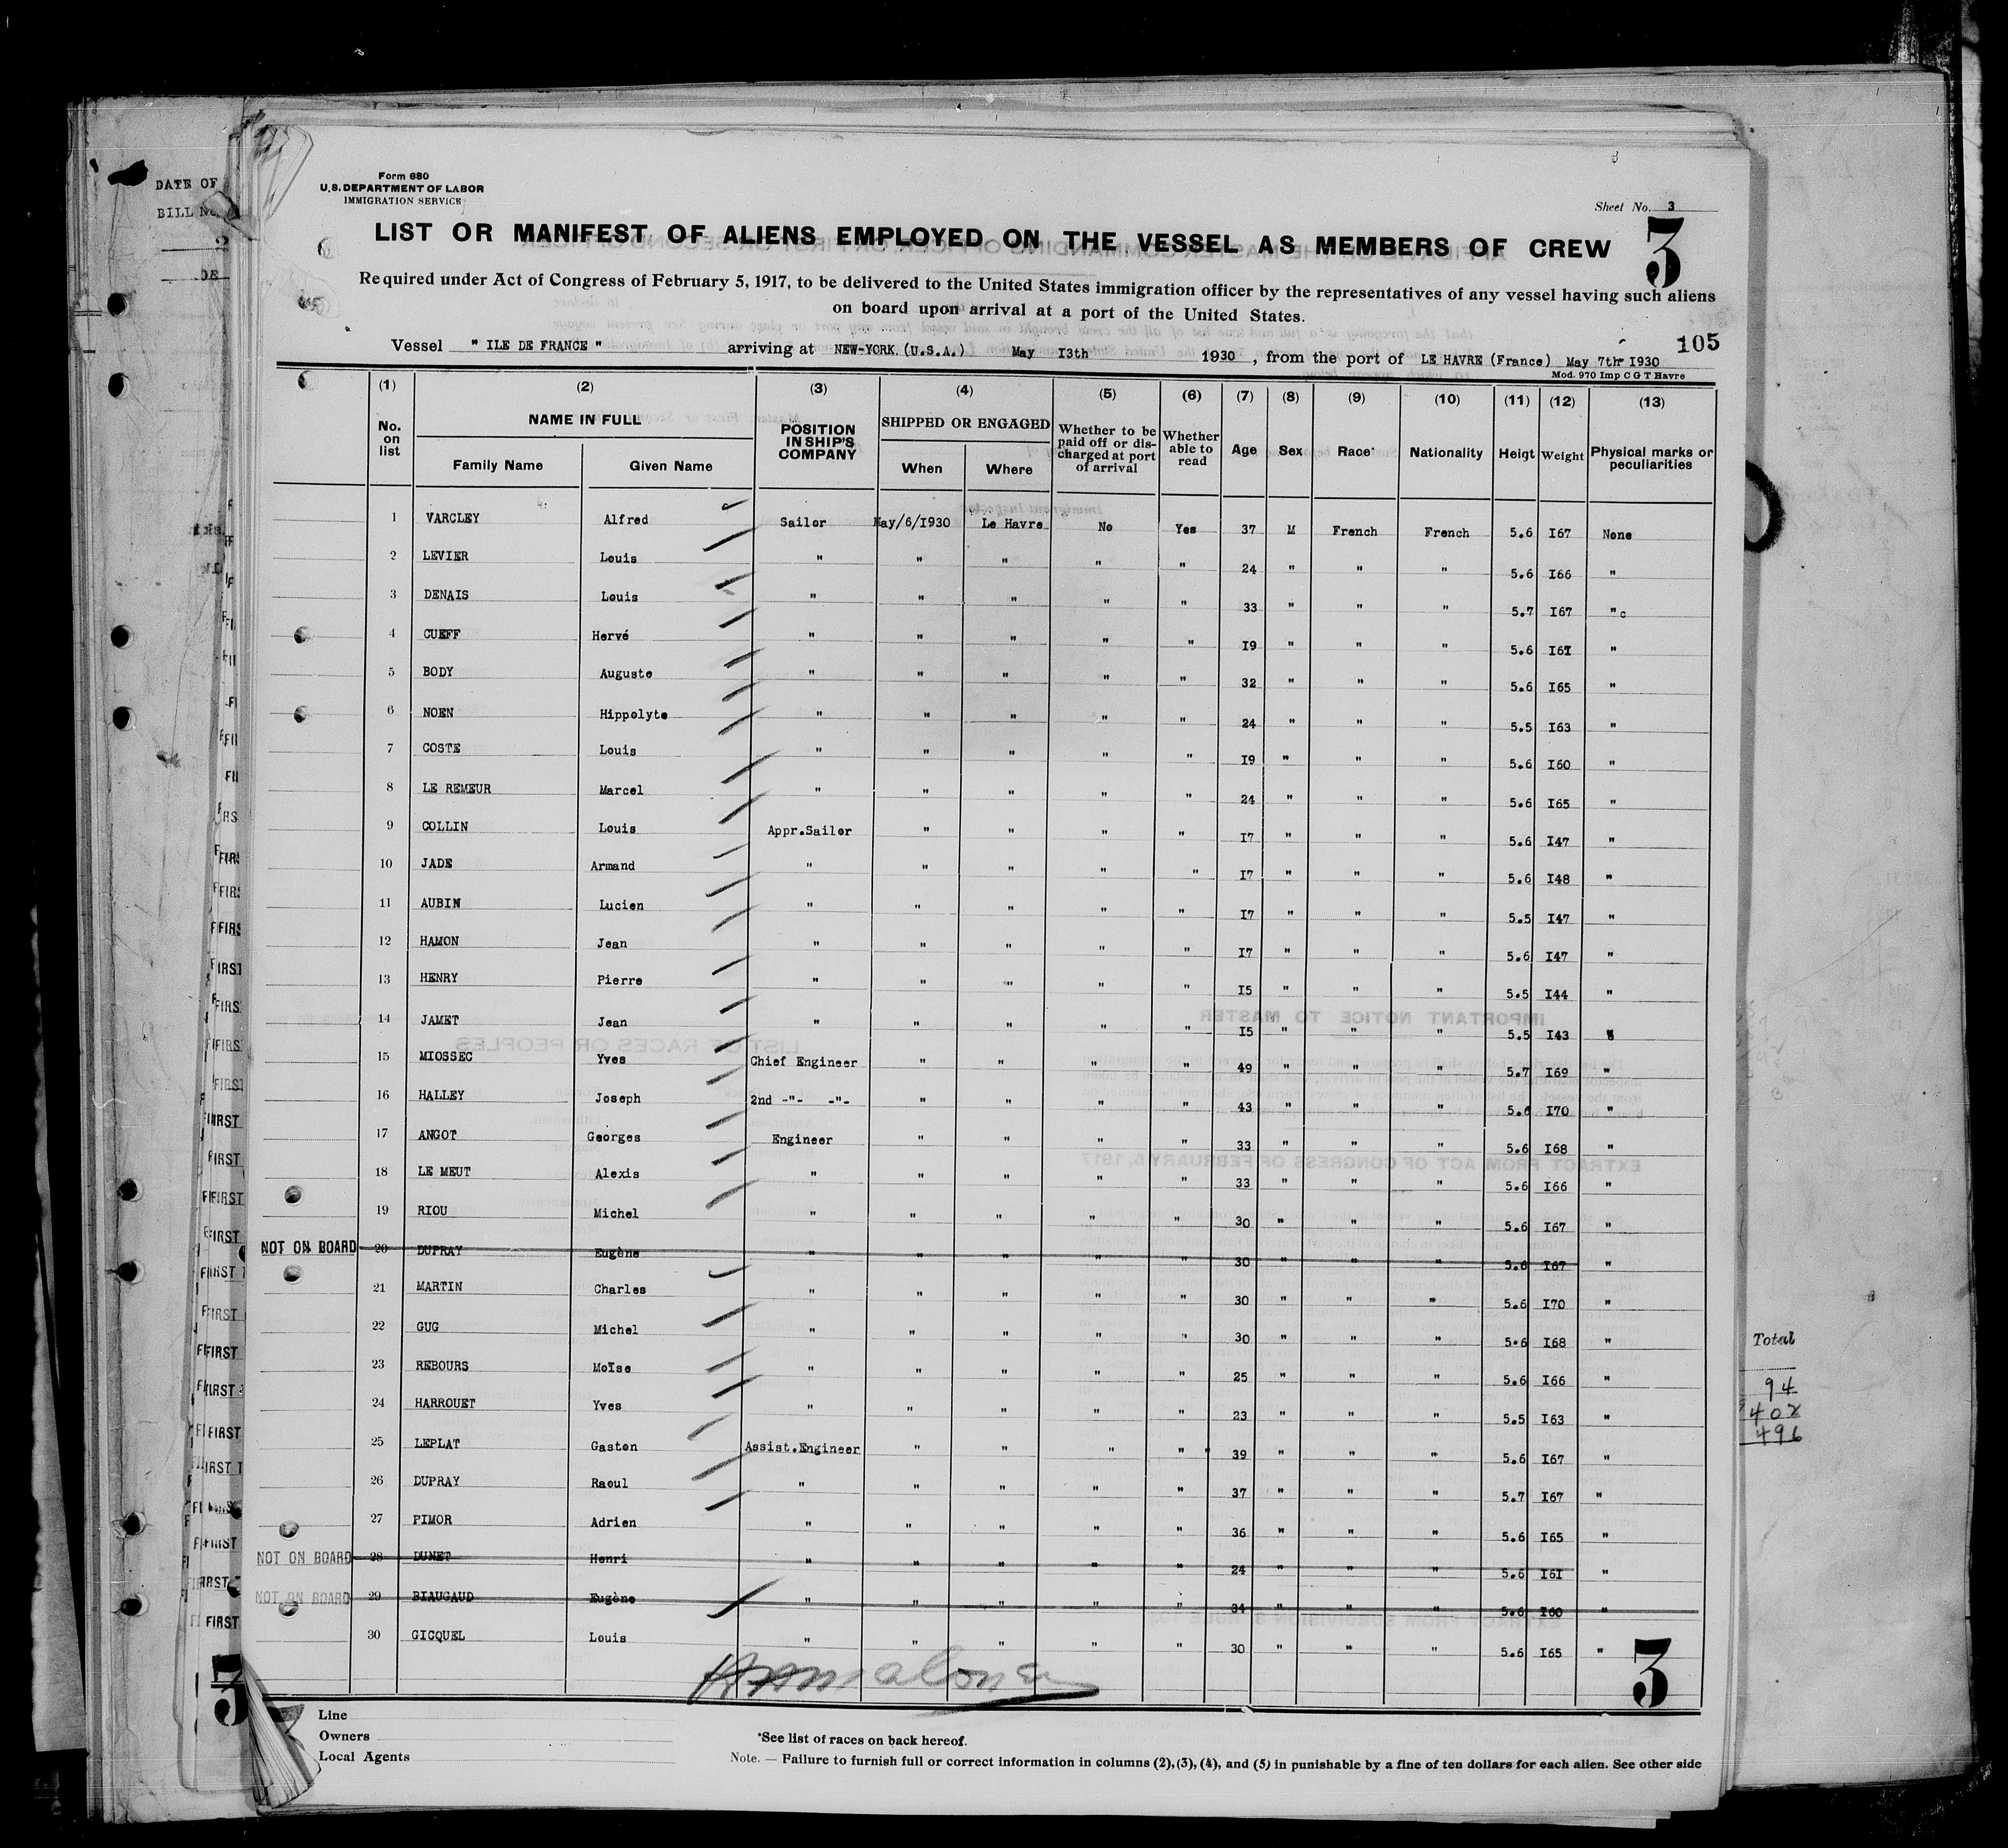 DATE OF
BILL No.
Form 680
U.S. DEPARTMENT OF LABOR
IMMIGRATION SERVICE
Sheet No. 3
3
LIST OR MANIFEST OF ALIENS EMPLOYED ON THE VESSEL AS MEMBERS OF CREW
Required under Act of Congress of February 5, 1917, to be delivered to the United States immigration officer by the representatives of any vessel having such aliens
on board upon arrival at a port of the United States.
105
Vessel " ILE DE FRANCE " arriving at NEW-YORK.(U.S.A.) May I3th 1930 , from the port of LE HAVRE (France) May 7th I930
Mod. 970 Imp C G T Havre
(1) (2) (3) (4) (5) (6) (7) (8) (9) (10) (11) (12) (13)
No. on list NAME IN FULL Family Name Given Name POSITION IN SHIP'S COMPANY SHIPPED OR ENGAGED When Where Whether to be paid off or discharged at port of arrival Whether able to read Age Sex Race* Nationality Heigt Weight Physical marks or peculiarities
1 VARCLEY Alfred Sailor May/6/I930 Le Havre No Yes 37 M French French 5.6 I67 None
2 LEVIER Louis " " " " " 24 " " " 5.6 I66 "
3 DENAIS Louis " " " " " 33 " " " 5.7 I67 " c
4 CUEFF Hervé " " " " " I9 " " " 5.6 I6I "
5 BODY Auguste " " " " " 32 " " " 5.6 I65 "
6 NOEN Hippolyte " " " " " 24 " " " 5.5 I63 "
7 COSTE Louis " " " " " I9 " " " 5.6 I60 "
8 LE REMEUR Marcel " " " " " 24 " " " 5.6 I65 "
9 COLLIN Louis Appr.Sailor " " " " I7 " " " 5.6 I47 "
10 JADE Armand " " " " " I7 " " " 5.6 I48 "
11 AUBIN Lucien " " " " " I7 " " " 5.5 I47 "
12 HAMON Jean " " " " " I7 " " " 5.6 I47 "
13 HENRY Pierre " " " " " I5 " " " 5.5 I44 "
14 JAMET Jean " " " " " I5 " " " 5.5 I43 "
15 MIOSSEC Yves Chief Engineer " " " " 49 " " " 5.7 I69 "
16 HALLEY Joseph 2nd -"- -"- " " " " 43 " " " 5.6 I70 "
17 ANGOT Georges Engineer " " " " 33 " " " 5.6 I68 "
18 LE MEUT Alexis " " " " " 33 " " " 5.6 I66 "
19 RIOU Michel " " " " " 30 " " " 5.6 I67 "
NOT ON BOARD 20 DUPRAY Eugène " " " " " 30 " " " 5.6 I67 "
21 MARTIN Charles " " " " " 30 " " " 5.6 I70 "
22 GUG Michel " " " " " 30 " " " 5.6 I68 "
23 REBOURS Moïse " " " " " 25 " " " 5.6 I66 "
24 HARROUET Yves " " " " " 23 " " " 5.5 I63 "
25 LEPLAT Gaston Assist.Engineer " " " " 39 " " " 5.6 I67 "
26 DUPRAY Raoul " " " " " 37 " " " 5.7 I67 "
27 PIMOR Adrien " " " " " 36 " " " 5.6 I65 "
NOT ON BOARD 28 DUNET Henri " " " " " 24 " " " 5.6 I6I "
NOT ON BOARD 29 BIAUGAUD Eugène " " " " " 34 " " " 5.6 I60 "
30 GICQUEL Louis " " " " " 30 " " " 5.6 I65 "
3
Line
Owners
Local Agents
*See list of races on back hereof.
Note. — Failure to furnish full or correct information in columns (2),(3), (4), and (5) in punishable by a fine of ten dollars for each alien. See other side
Total
94
402
496